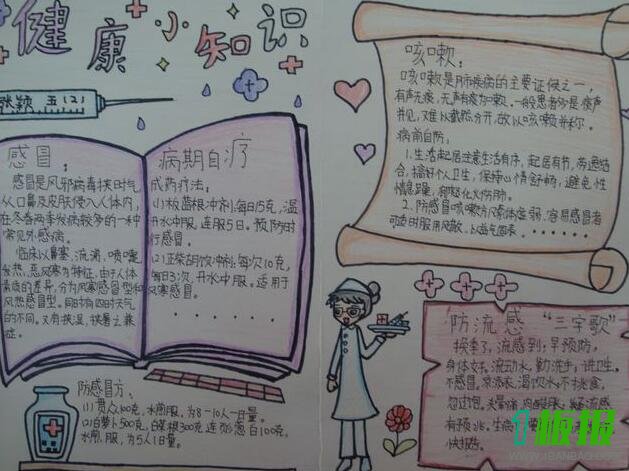 健康小知识
张颖 五(2)
感冒:
感冒是风邪病毒挟时气
从口鼻及皮肤侵入人体内,
在冬春两季发病较多的一种
常见外感病。
临床以鼻塞、流涕、喷嚏
发热、恶风寒为特征,由于人体
素质的差异,分为风寒感冒型和
风热感冒型。同时有四时天气
的不同,又有挟湿、挟暑之兼
症。
病期自疗
成药疗法:
(1)板蓝根冲剂:每日15克,温
开水冲服,连服5日。预防时
行感冒。
(2)正柴胡饮冲剂:每次10克,
每日3次,开水冲服。适用于
风寒感冒。
防感冒方:
(1)贯众100克,水煎服,为8-10人一日量。
(2)白萝卜500克,白菜根300克 连须葱白100克,
水煎服,为5人1日量。
咳嗽:
咳嗽是肺疾病的主要证候之一,
有声无痰,无声有痰为嗽。一般患者多是痰声
并见,难以截然分开,故以咳嗽并称。
病前自防:
1.生活起居注意生活有序,起居有节,劳逸结
合,搞好个人卫生,保持心情舒畅,避免性
情急躁,郁怒化火伤肺。
2.防感冒咳嗽方
体虚弱,容易感冒者
可适时服用
防流感“三字歌”
换季了,流感到;早预防,
身体好。流动水,勤洗手,讲卫生,
不感冒。凉添衣,渴饮水,不挑食,
勿过饱。
有预兆。生病
快报告。
板报
WWW.1BANBAO.COM